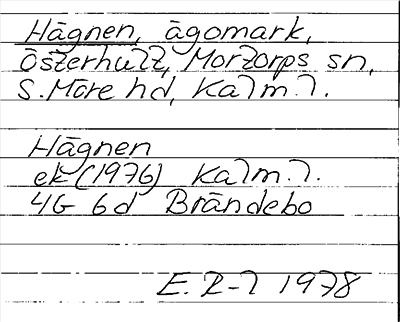 Hägnen, ägomark,
Österhult, Mortorps sn,
S. Möre hd, Kalm. l.
Hägnen
ek (1976) Kalm. l.
4G 6d Brändebo
E. R-l 1978